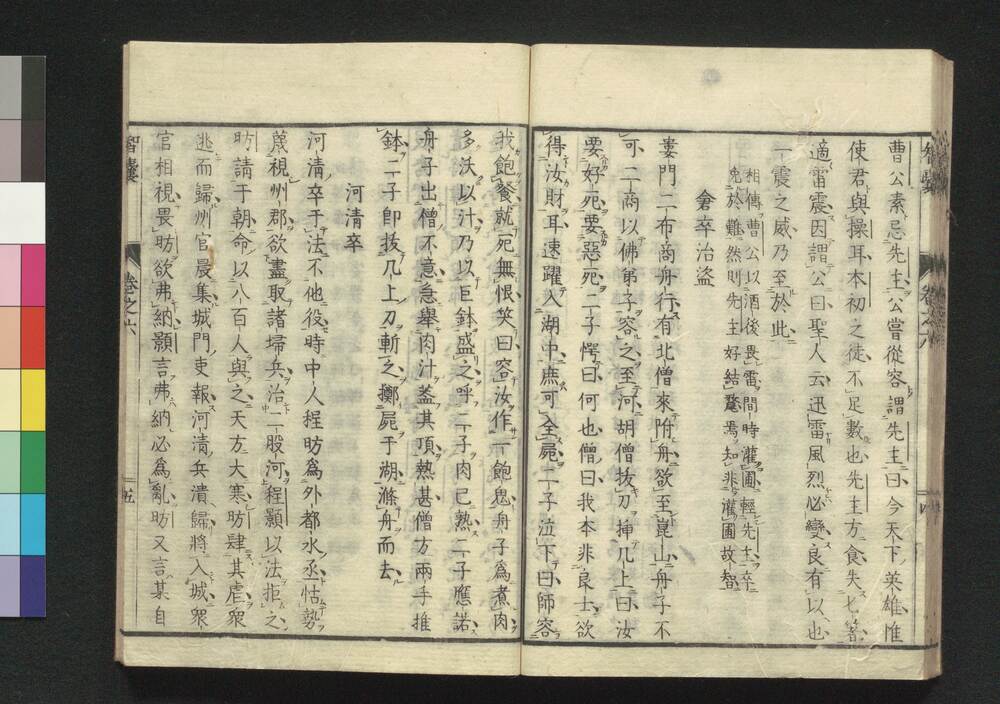 曹公素忌先主公嘗從容謂先主曰今天下英雄惟
使君與操耳本初之徒不足數也先主方食失匕箸
適雷震因謂公曰聖人云迅雷風烈必變良有以也
一震之威乃至於此
相傳曹公以酒後畏雷間時灌圃輕先主卒
免於難然則先主好結髦焉知非灌圃故智
倉卒治盜
婁門二布商舟行有北僧來附舟欲至崑山舟子不
可二商以佛弟子容之至河胡僧拔刀插几上曰汝
要好死要惡死二子愕曰何也僧曰我本非良士欲
得汝財耳速躍入湖中庶可全屍二子泣下曰師容
智囊
卷之六
四
我飽餐就死無恨笑曰容汝作一飽鬼舟子為煮肉
多沃以汁乃以巨鉢盛之呼二子肉已熟二子應諾
舟子出僧不意急舉肉汁蓋其頂熱甚僧方兩手推
鉢二子即拔几上刀斬之擲屍于湖滌舟而去
河清卒
河清卒于法不他役時中人程昉為外都水丞怙勢
蔑視州郡欲盡取諸埽兵治二股河程顥以法拒之
昉請于朝命以八百人與之天方大寒昉肆其虐眾
逃而歸州官晨集城門吏報河清兵潰歸將入城眾
官相視畏昉欲弗納顥言弗納必為亂昉又言某自
智囊
卷之六
五